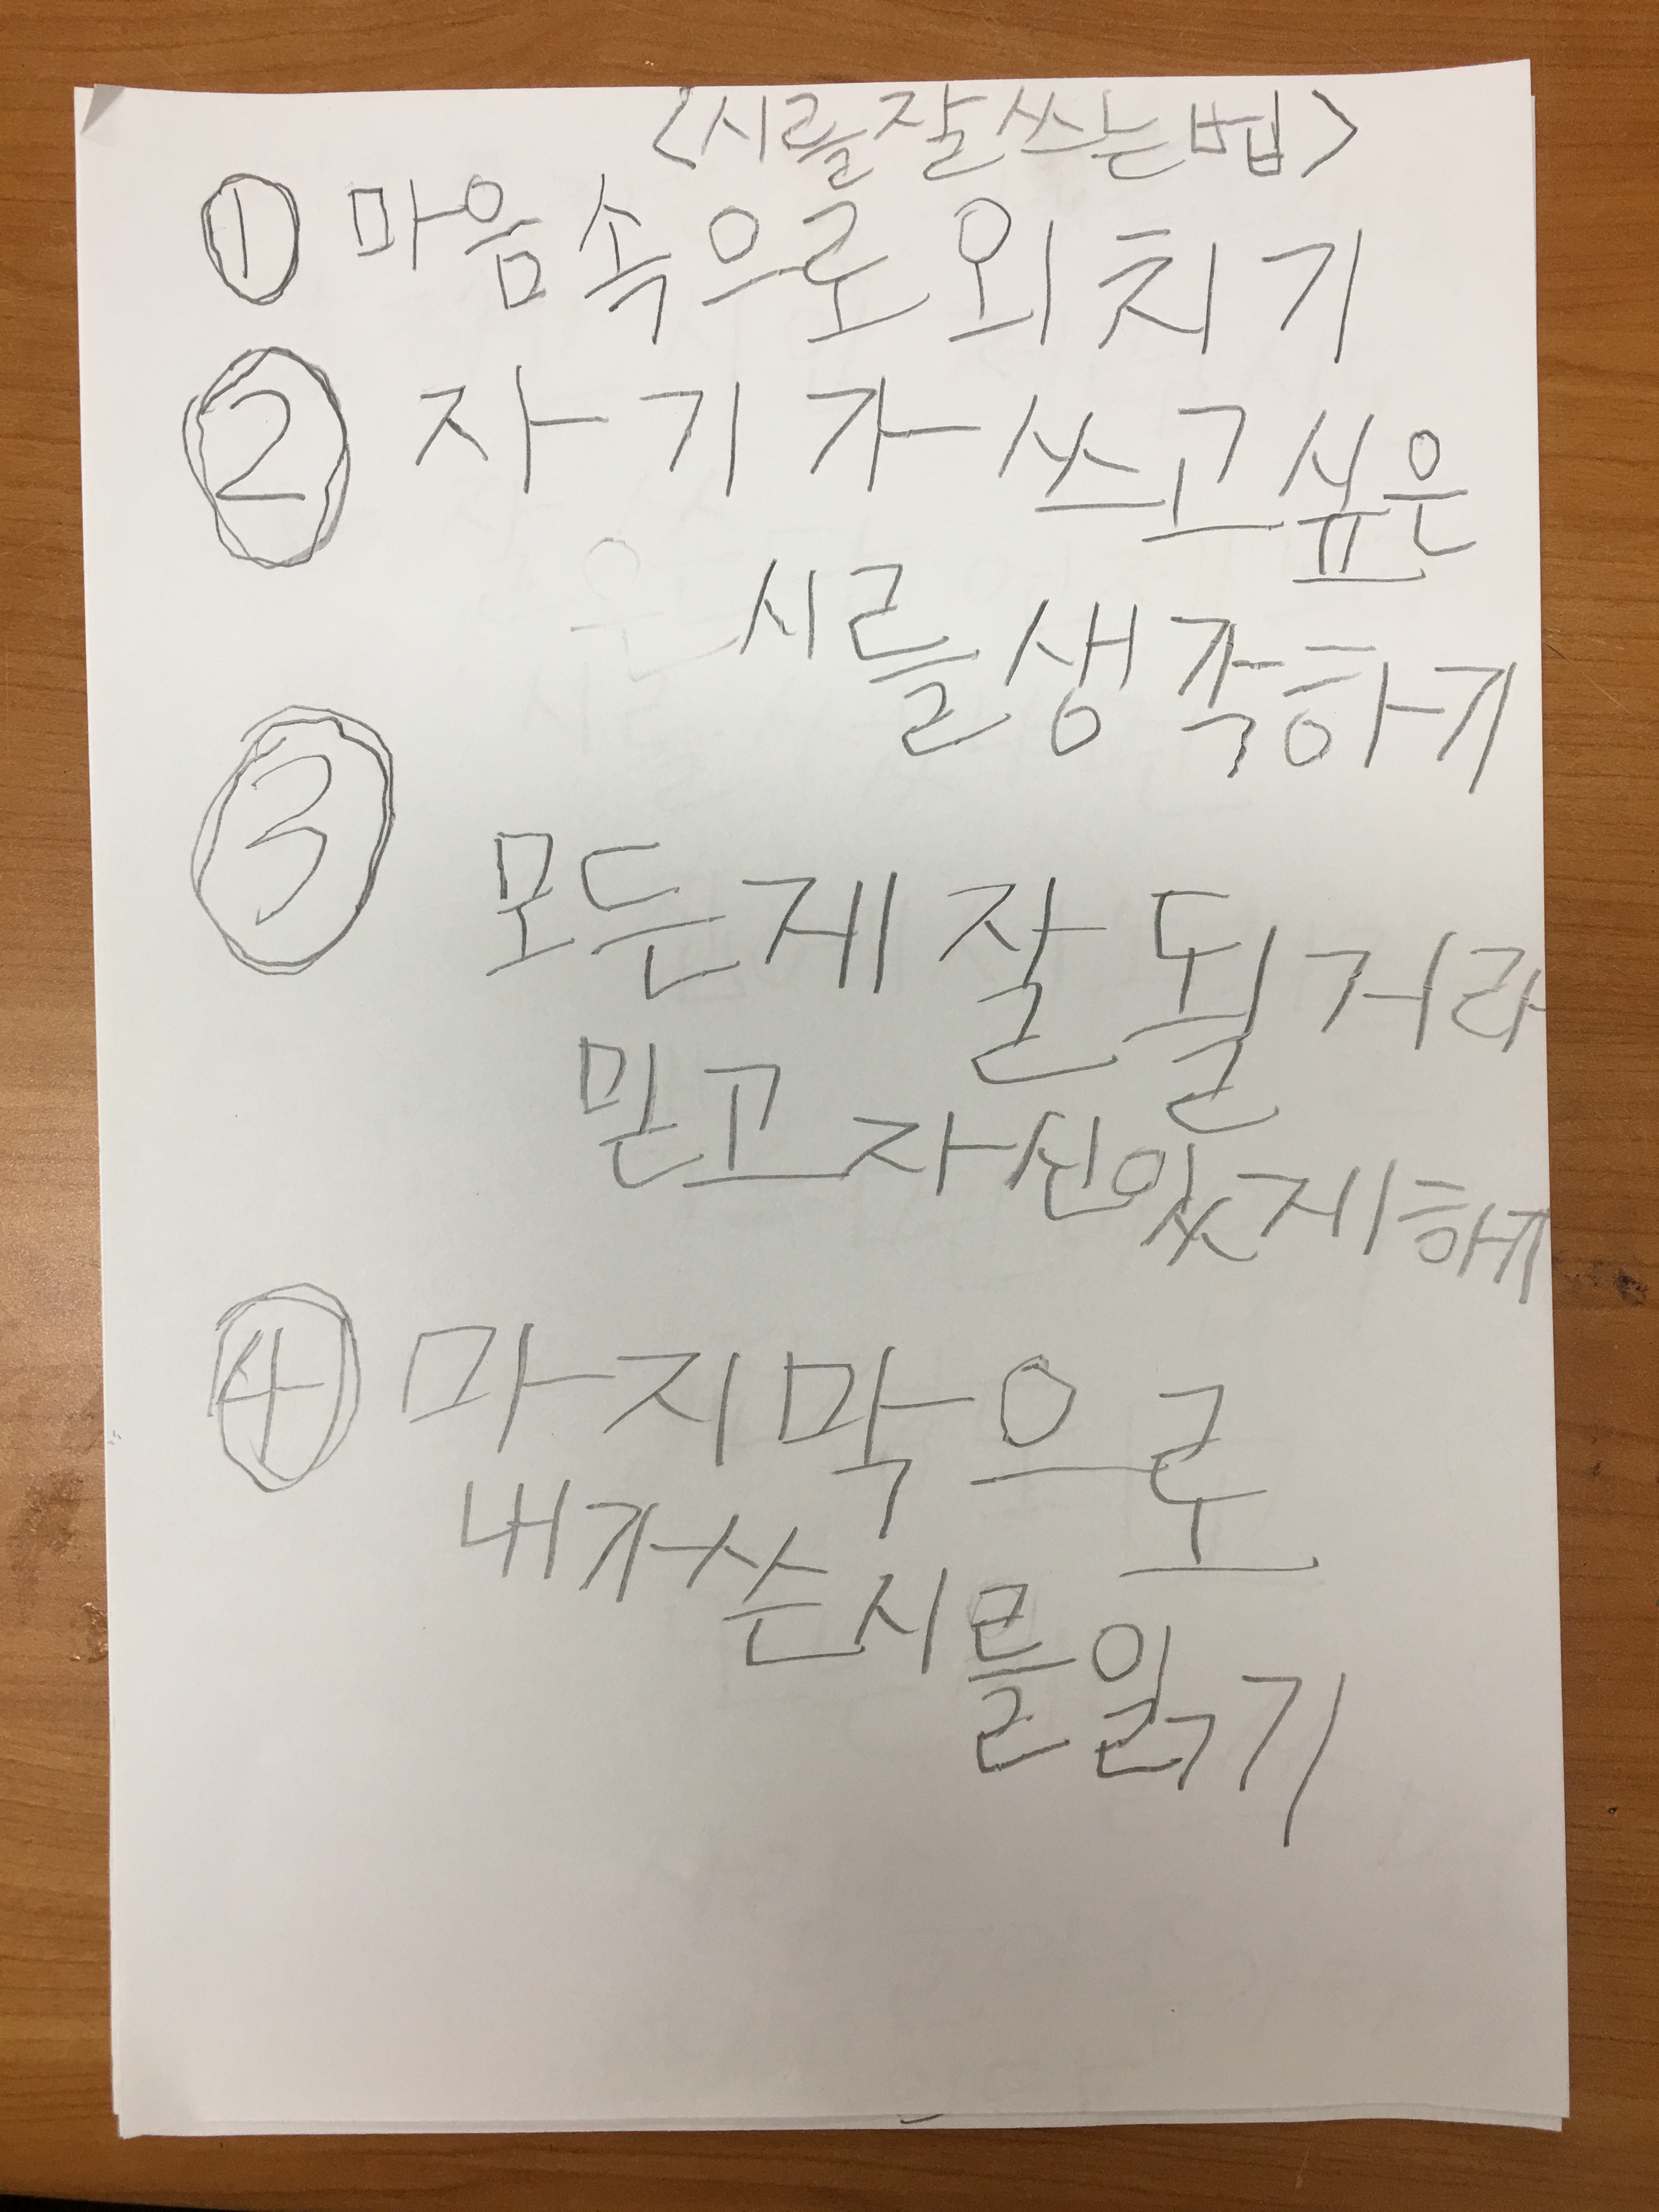 <시를 잘 쓰는 법>
① 마음속으로 외치기
② 자기가 쓰고 싶은
시를 생각하기
③ 모든게 잘 될 거라
믿고 자신있게 하기
④ 마지막으로
내가 쓴 시를 읽기